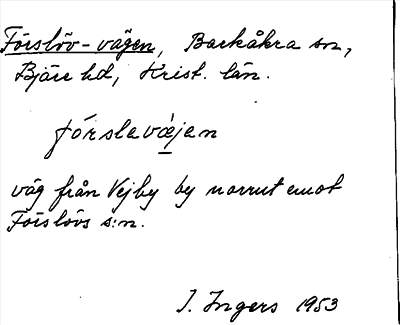 Förslöv-vägen, Barkåkra sn,
Bjäre hd, Krist. län.
fó̀rslevä̀jen
väg från Vejby by norrut emot
Förslövs s:n.
I. Ingers 1953